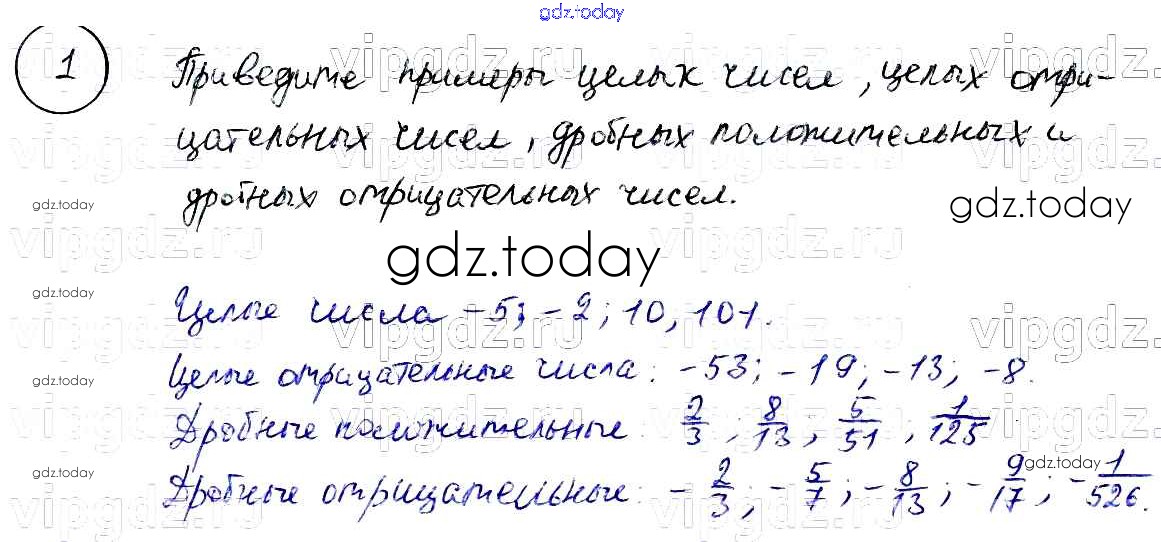 gdz.today
1
Приведите примеры целых чисел, целых отри-
цательных чисел, дробных положительных и
дробных отрицательных чисел.
gdz.today
gdz.today
gdz.today
gdz.today
Целые числа -5; -2; 10, 101.
Целые отрицательные числа: -53; -19; -13; -8.
Дробные положительные 2/3, 8/13, 5/51, 1/125
gdz.today
gdz.today
Дробные отрицательные: -2/3; -5/7; -8/13; -9/17; -1/526.
vipgdz.ru
vipgdz.ru
vipgdz.ru